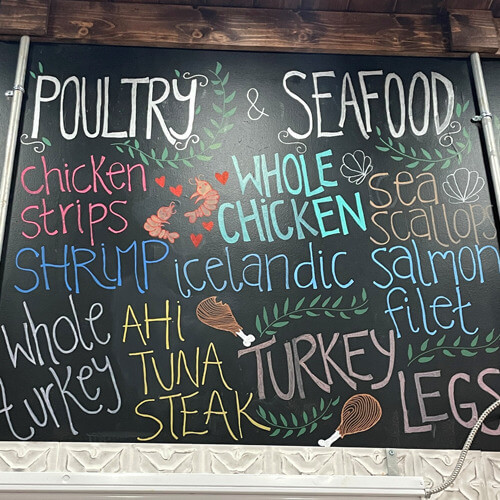 POULTRY & SEAFOOD
chicken strips
WHOLE CHICKEN
sea scallops
SHRIMP
icelandic salmon filet
whole turkey
AHI TUNA STEAK
TURKEY LEGS